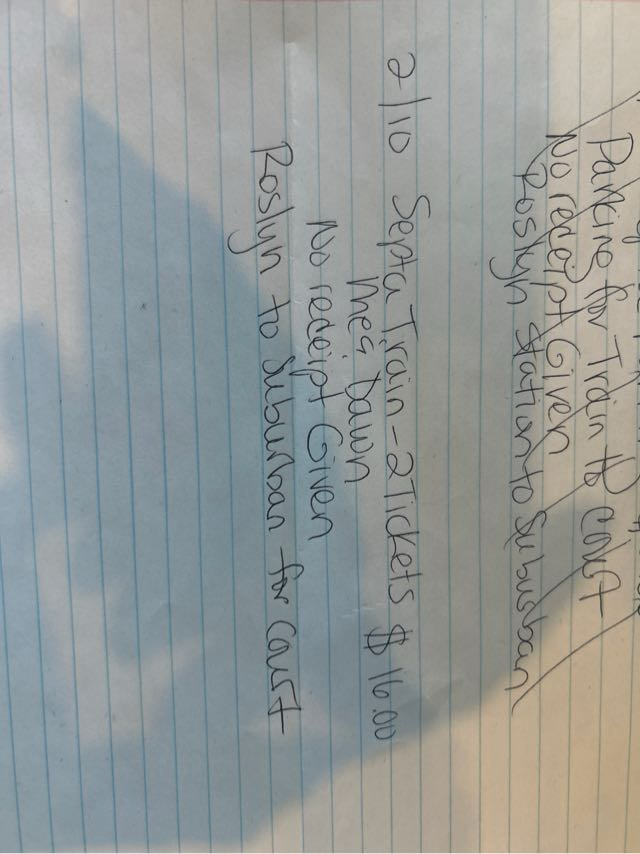 Parking for Train to Court
No receipt Given
Roslyn station to Suburban
2/10 Septa Train - 2 Tickets $16.00
Me; Dawn
No receipt Given
Roslyn to Suburban for Court